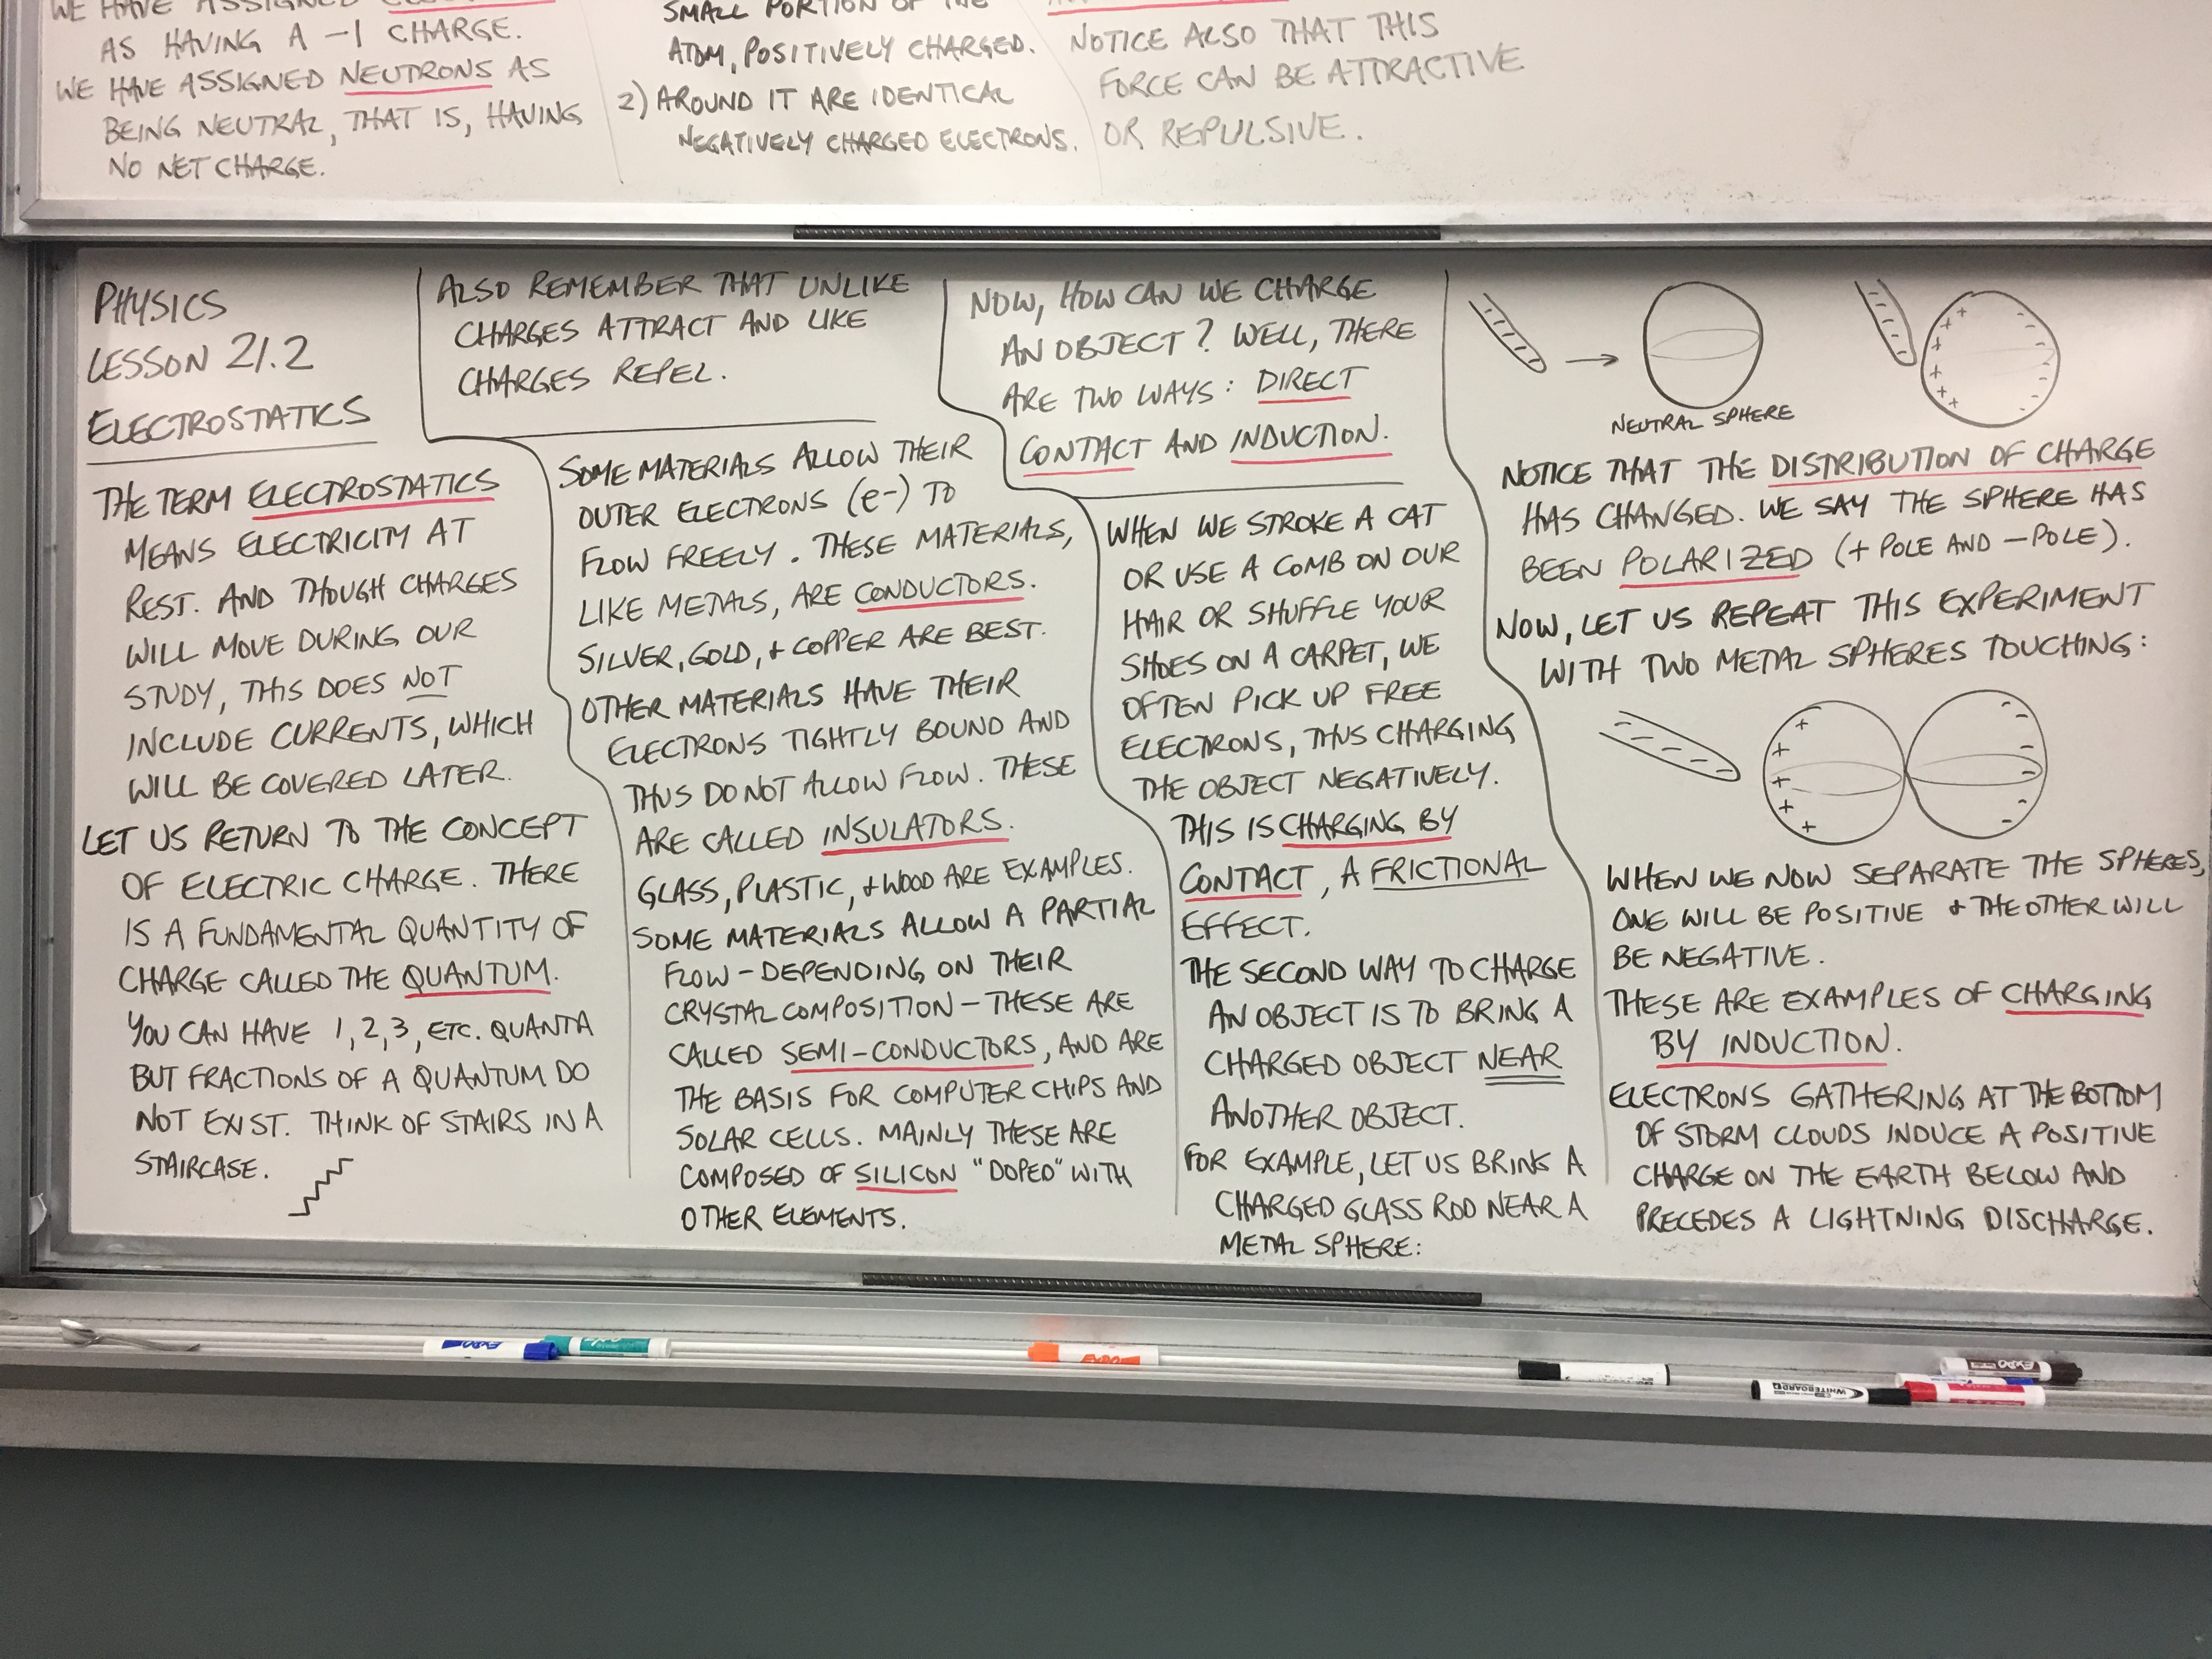 WE HAVE ASSIGNED
AS HAVING A -1 CHARGE.
WE HAVE ASSIGNED NEUTRONS AS
BEING NEUTRAL, THAT IS, HAVING
NO NET CHARGE.
SMALL PORTION OF THE
ATOM, POSITIVELY CHARGED.
2) AROUND IT ARE IDENTICAL
NEGATIVELY CHARGED ELECTRONS.
NOTICE ALSO THAT THIS
FORCE CAN BE ATTRACTIVE
OR REPULSIVE.
PHYSICS
LESSON 21.2
ELECTROSTATICS
THE TERM ELECTROSTATICS
MEANS ELECTRICITY AT
REST. AND THOUGH CHARGES
WILL MOVE DURING OUR
STUDY, THIS DOES NOT
INCLUDE CURRENTS, WHICH
WILL BE COVERED LATER.
LET US RETURN TO THE CONCEPT
OF ELECTRIC CHARGE. THERE
IS A FUNDAMENTAL QUANTITY OF
CHARGE CALLED THE QUANTUM.
YOU CAN HAVE 1, 2, 3, ETC. QUANTA
BUT FRACTIONS OF A QUANTUM DO
NOT EXIST. THINK OF STAIRS IN A
STAIRCASE.
ALSO REMEMBER THAT UNLIKE
CHARGES ATTRACT AND LIKE
CHARGES REPEL.
SOME MATERIALS ALLOW THEIR
OUTER ELECTRONS (e-) TO
FLOW FREELY. THESE MATERIALS,
LIKE METALS, ARE CONDUCTORS.
SILVER, GOLD, + COPPER ARE BEST.
OTHER MATERIALS HAVE THEIR
ELECTRONS TIGHTLY BOUND AND
THUS DO NOT ALLOW FLOW. THESE
ARE CALLED INSULATORS.
GLASS, PLASTIC, + WOOD ARE EXAMPLES.
SOME MATERIALS ALLOW A PARTIAL
FLOW - DEPENDING ON THEIR
CRYSTAL COMPOSITION - THESE ARE
CALLED SEMI-CONDUCTORS, AND ARE
THE BASIS FOR COMPUTER CHIPS AND
SOLAR CELLS. MAINLY THESE ARE
COMPOSED OF SILICON "DOPED" WITH
OTHER ELEMENTS.
NOW, HOW CAN WE CHARGE
AN OBJECT? WELL, THERE
ARE TWO WAYS: DIRECT
CONTACT AND INDUCTION.
WHEN WE STROKE A CAT
OR USE A COMB ON OUR
HAIR OR SHUFFLE YOUR
SHOES ON A CARPET, WE
OFTEN PICK UP FREE
ELECTRONS, THUS CHARGING
THE OBJECT NEGATIVELY.
THIS IS CHARGING BY
CONTACT, A FRICTIONAL
EFFECT.
THE SECOND WAY TO CHARGE
AN OBJECT IS TO BRING A
CHARGED OBJECT NEAR
ANOTHER OBJECT.
FOR EXAMPLE, LET US BRING A
CHARGED GLASS ROD NEAR A
METAL SPHERE:
NEUTRAL SPHERE
NOTICE THAT THE DISTRIBUTION OF CHARGE
HAS CHANGED. WE SAY THE SPHERE HAS
BEEN POLARIZED (+ POLE AND - POLE).
NOW, LET US REPEAT THIS EXPERIMENT
WITH TWO METAL SPHERES TOUCHING:
WHEN WE NOW SEPARATE THE SPHERES,
ONE WILL BE POSITIVE + THE OTHER WILL
BE NEGATIVE.
THESE ARE EXAMPLES OF CHARGING
BY INDUCTION.
ELECTRONS GATHERING AT THE BOTTOM
OF STORM CLOUDS INDUCE A POSITIVE
CHARGE ON THE EARTH BELOW AND
PRECEDES A LIGHTNING DISCHARGE.
EXPO
EXPO
EXPO
WHITEBOARD